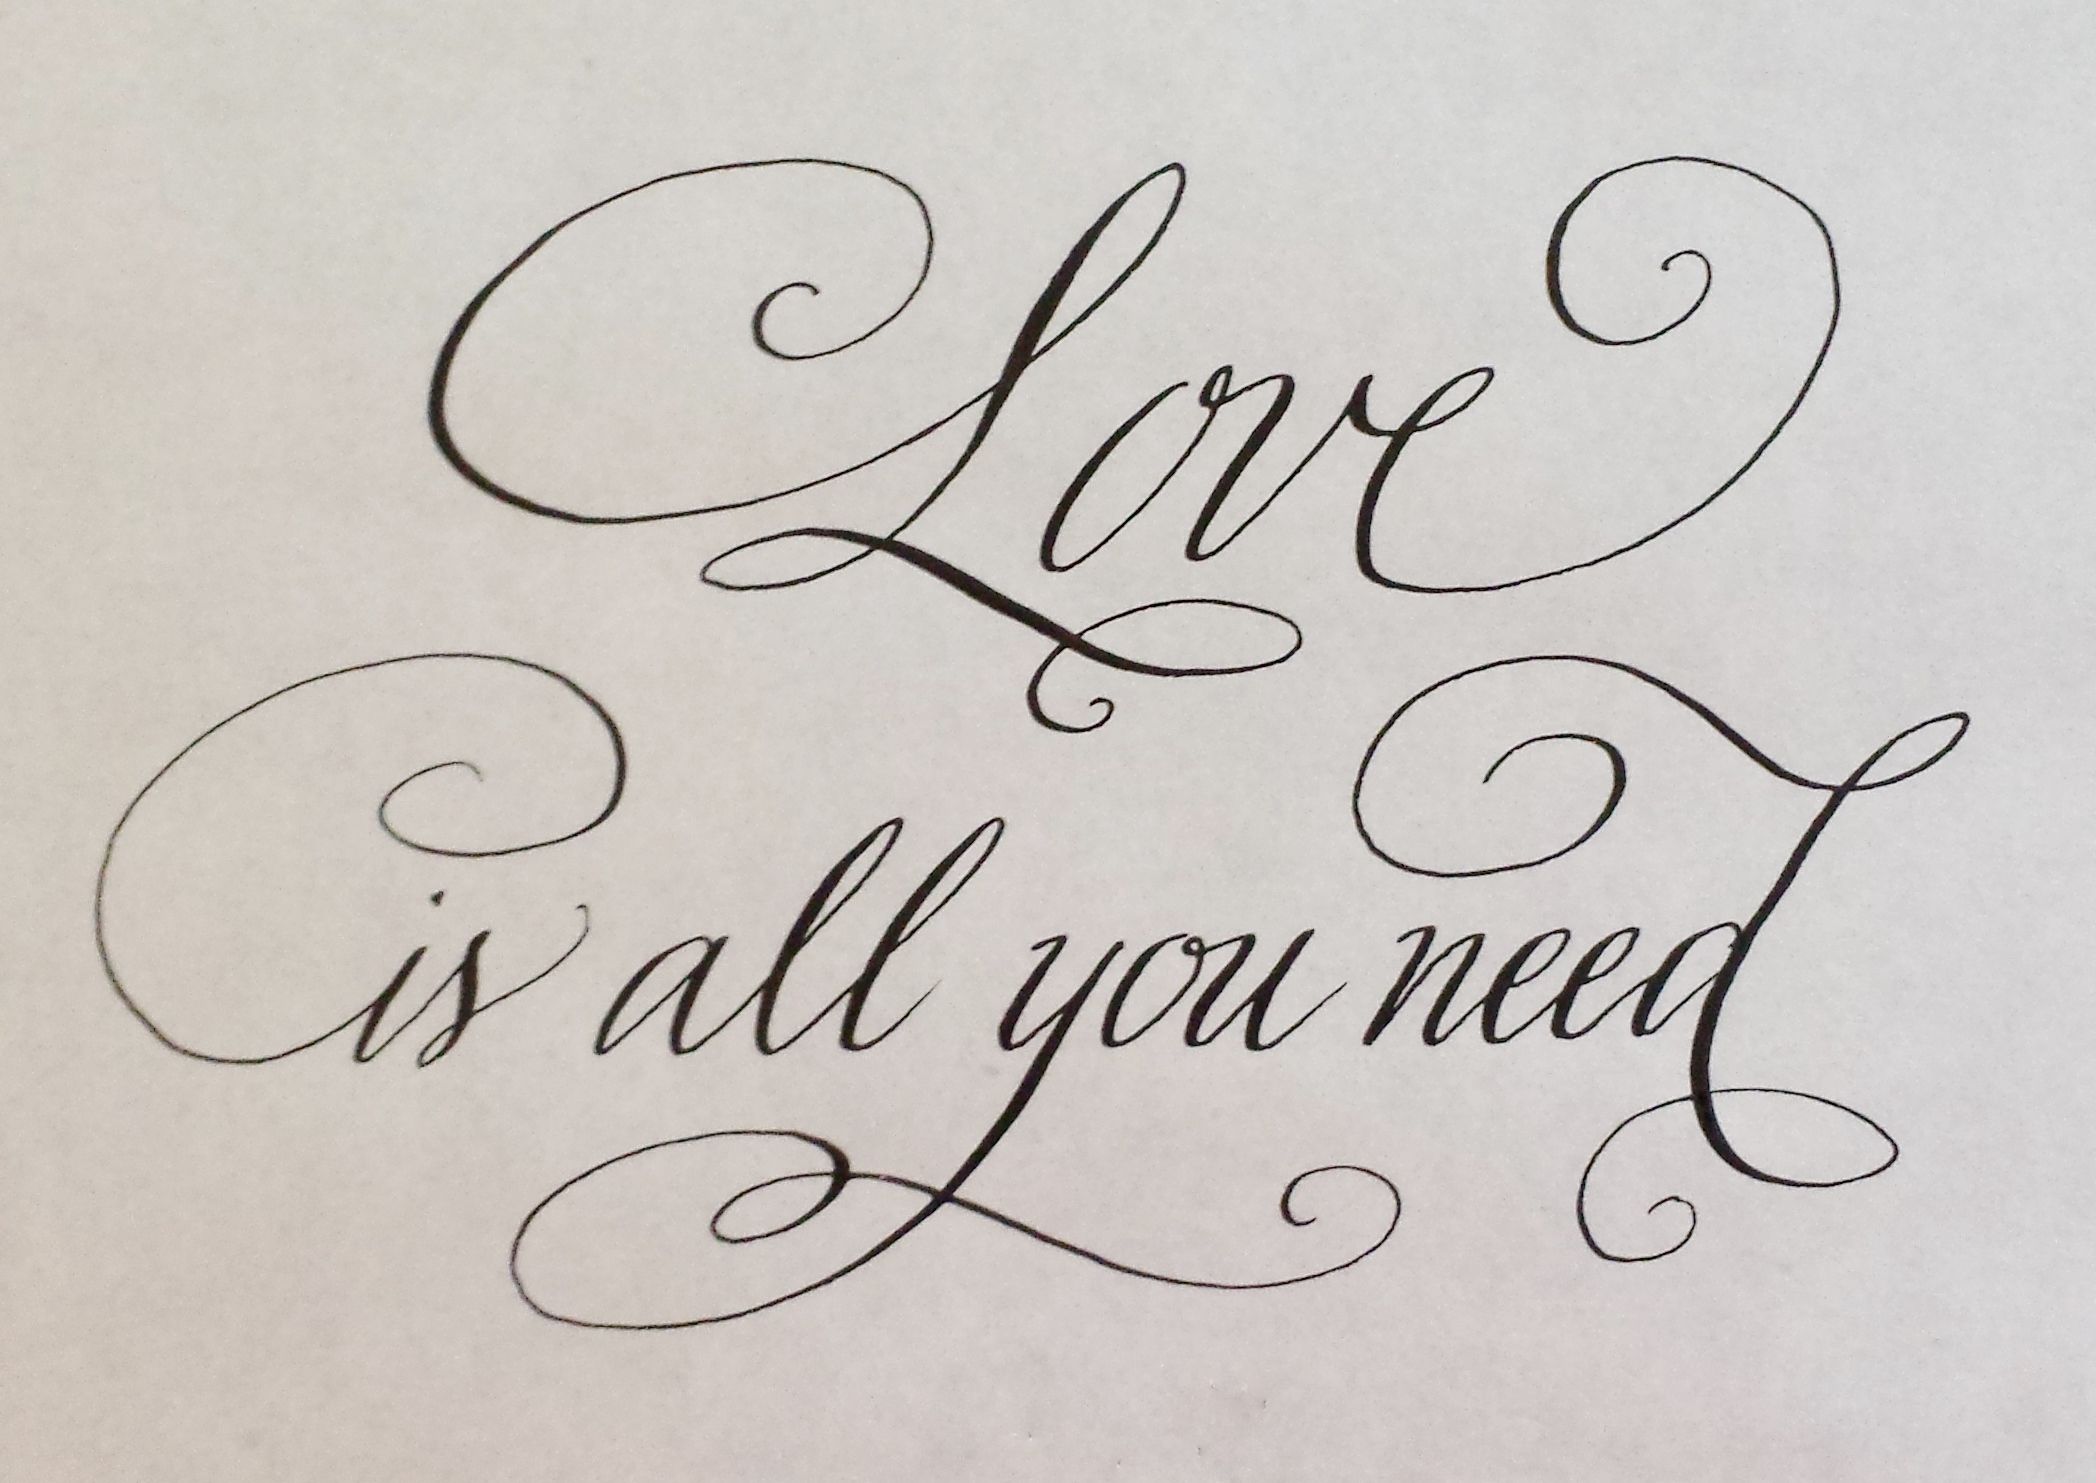 Love
is all you need